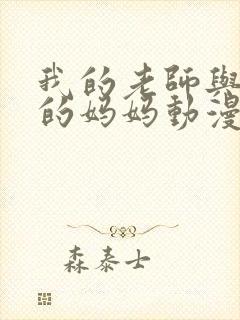 我的老師與
的妈妈動漫
森泰士